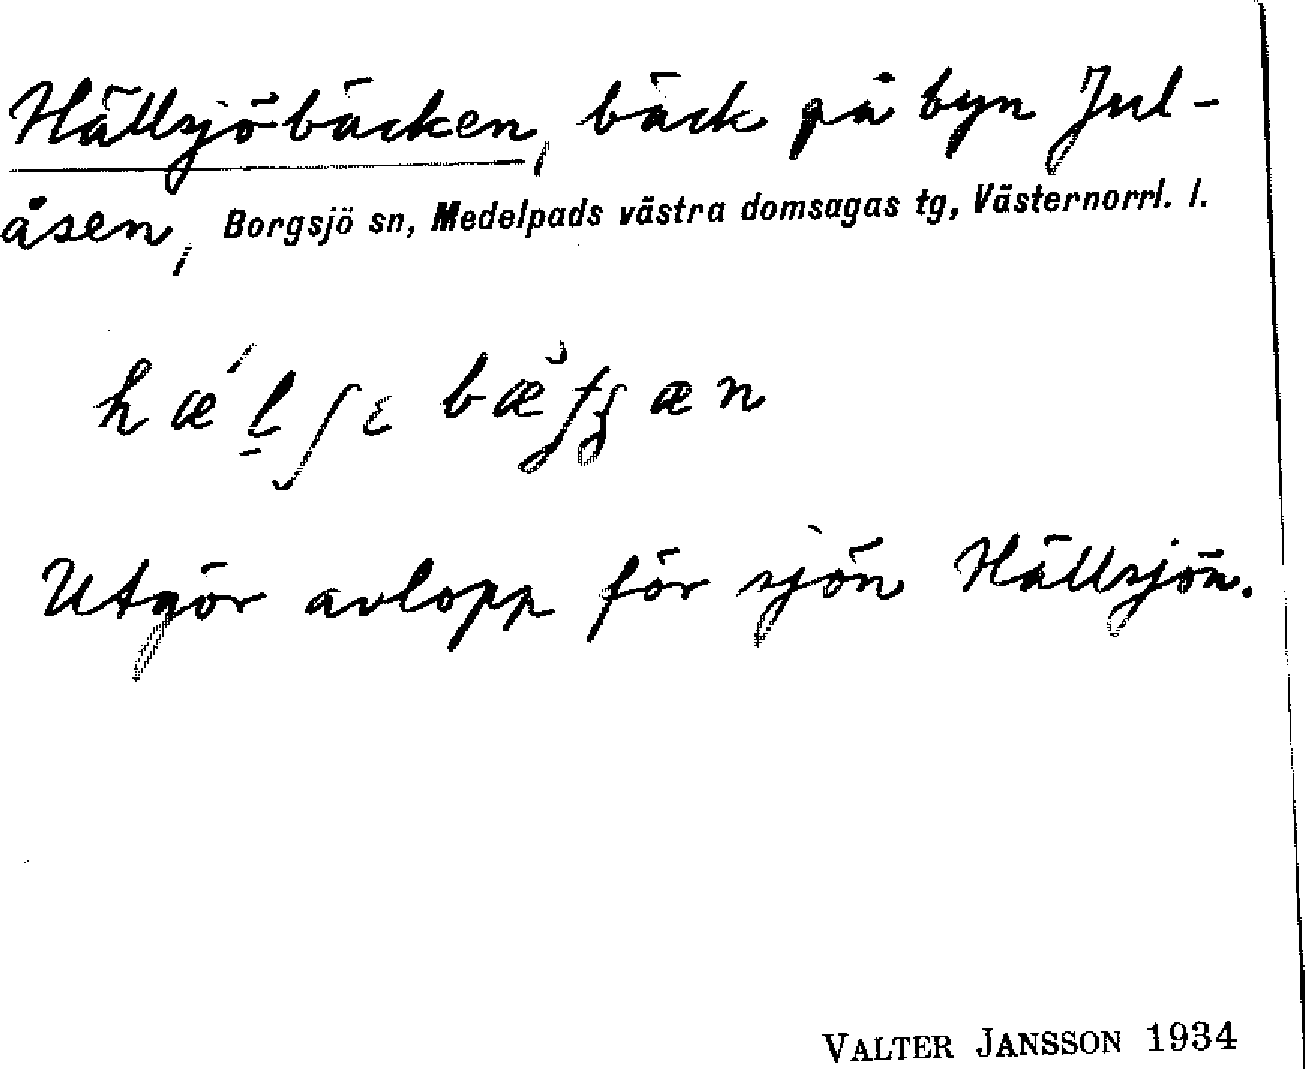 Hällsjöbäcken, bäck på byn Jul-
åsen, Borgsjö sn, Medelpads västra domsagas tg, Västernorrl. l.
Utgör avlopp för sjön Hällsjön.
VALTER JANSSON 1934